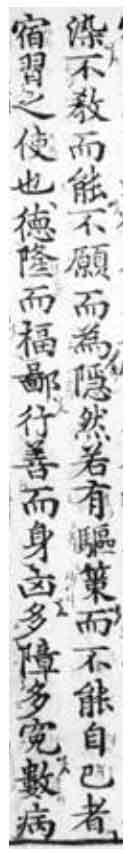 染不教而能不願而為隠然若有驅策而不能自已者
宿習之使也徳隆而福鄙行善而身凶多障多冤數病